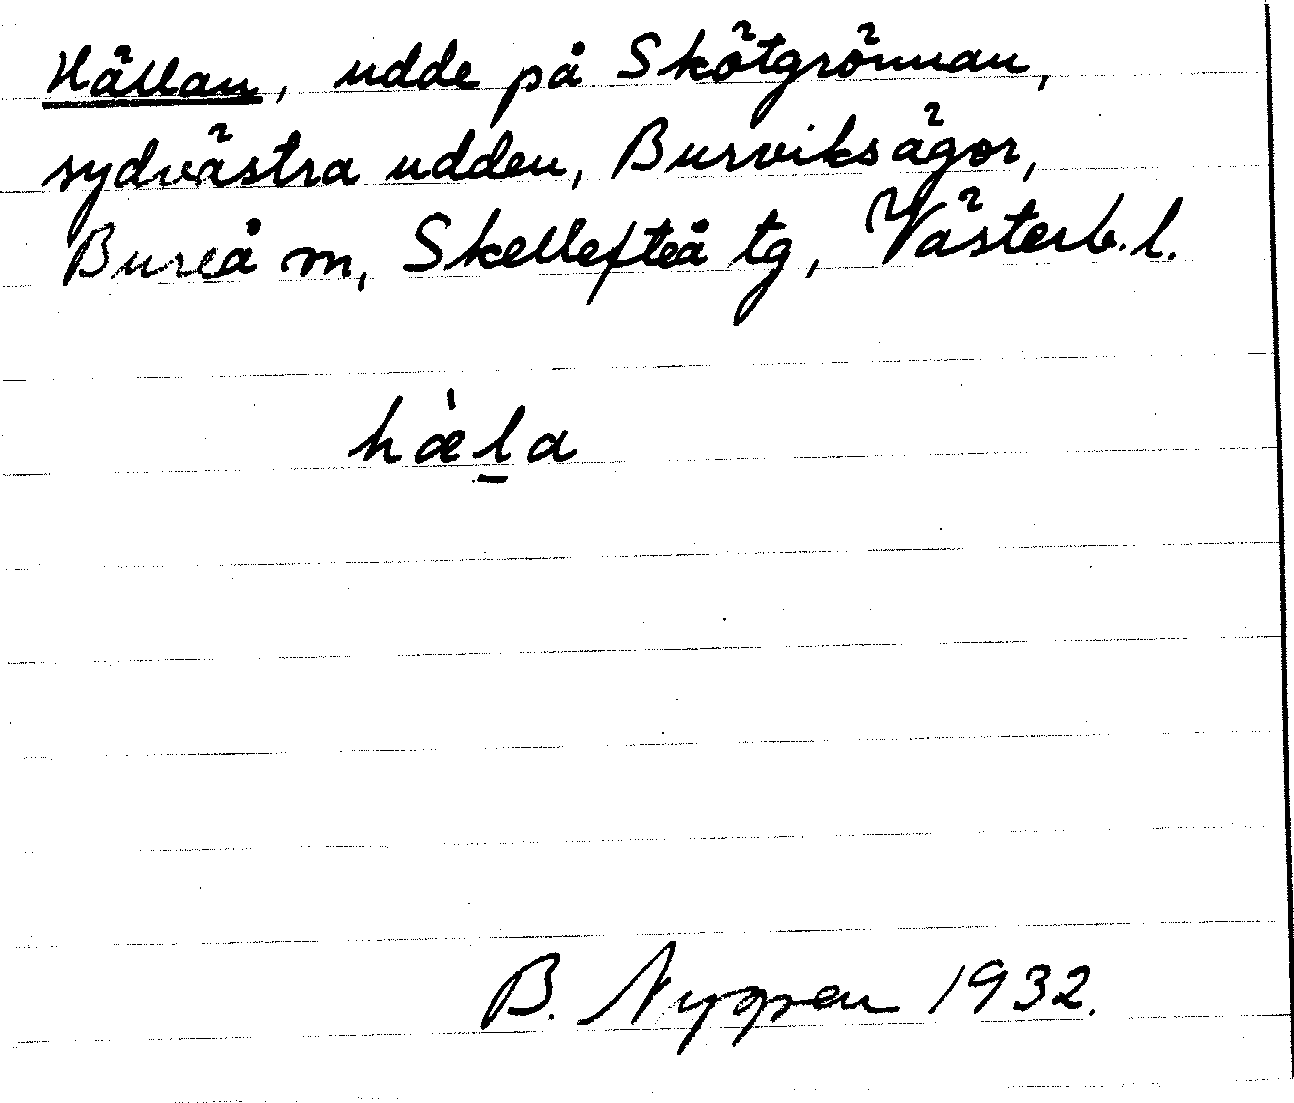 Hällan, udde på Skötgrönnan,
sydvästra udden, Burviksägor,
Bureå m, Skellefteå tg, Västerb. l.
hæ̀l̲a
B. Nyppen 1932.